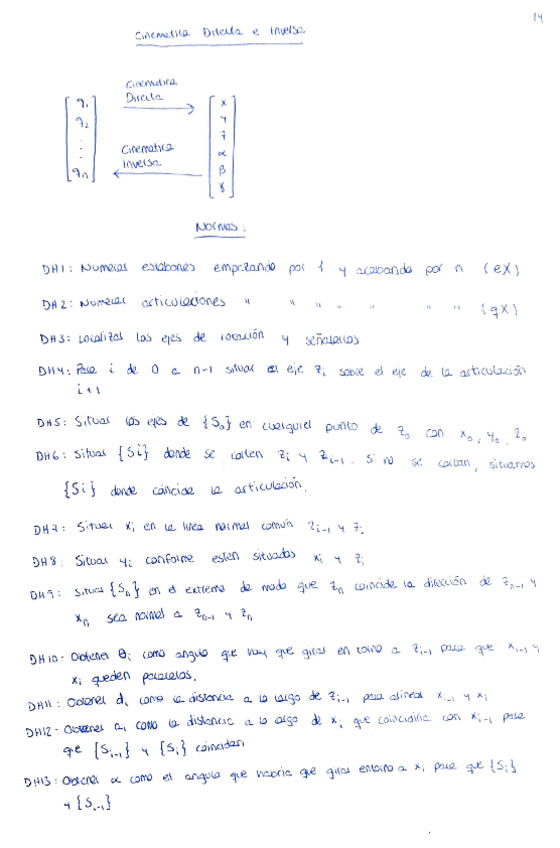 14
Cinematica Directa e Inversa
Cinematica
Directa
q1
q2
:
:
qn
x
y
z
α
β
γ
Cinematica
Inversa
Normas:
DH1: Numerar eslabones empezando por 1 y acabando por n (eX)
DH2: Numerar articulaciones " " " " " " " (qX)
DH3: Localizar los ejes de rotación y señalarlos
DH4: Para i de 0 a n-1 situar el eje Zi sobre el eje de la articulación
i+1
DH5: Situar los ejes de {S0} en cualquier punto de Z0 con x0, y0, z0
DH6: Situar {Si} donde se corten Zi y Zi-1. Si no se cortan, situamos
{Si} donde coincide la articulación.
DH7: Situar xi en la linea normal común Zi-1 y Zi
DH8: Situar yi conforme esten situados xi y Zi
DH9: Situar {Sn} en el extremo de modo que Zn coincide la dirección de Zn-1 y
xn sea normal a Zn-1 y Zn
DH10: Obtener θi como angulo que hay que girar en torno a Zi-1 para que xi-1 y
xi queden paralelos.
DH11: Obtener di como la distancia a lo largo de Zi-1 para alinear xi-1 y xi
DH12: Obtener ai como la distancia a lo largo de xi que coincidiria con xi-1 para
que {Si-1} y {Si} coincidan
DH13: Obtener α como el angulo que habria que girar entorno a xi para que {Si}
y {Si-1}